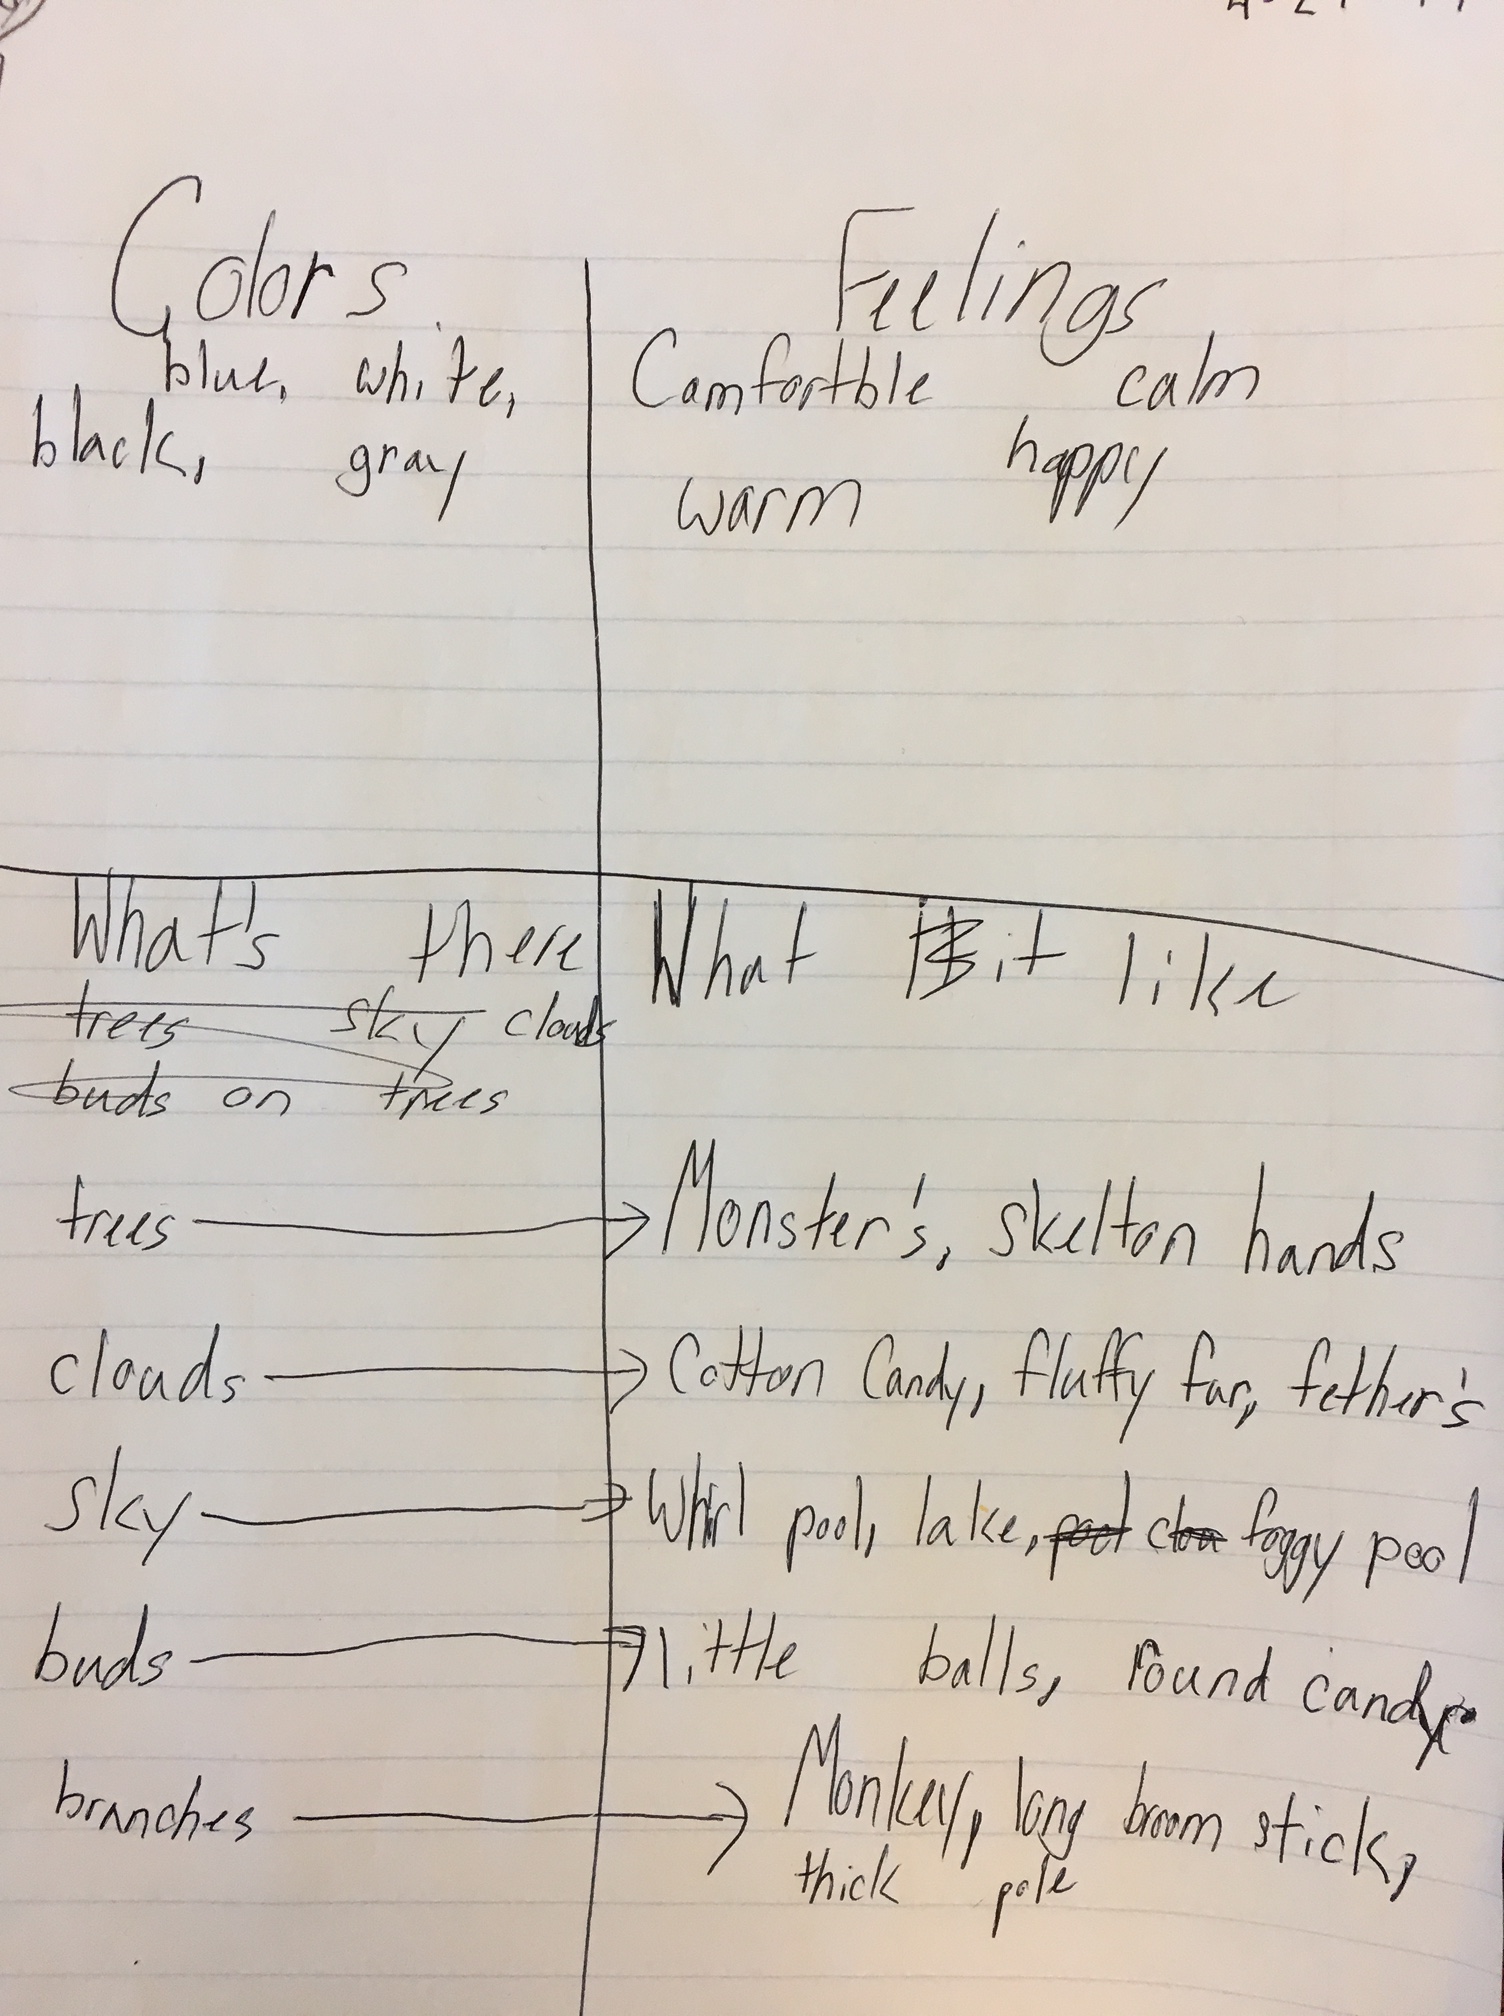 Colors
blue, white,
black, gray
Feelings
Comfortble calm
happy
warm
What's there
trees sky clouds
buds on trees
What it like
trees → Monster's, skelton hands
clouds → Cotton Candy, fluffy fur, fether's
sky → Whirl pool, lake, foggy pool
buds → little balls, round candy
branches → Monkey, long broom stick,
thick pole